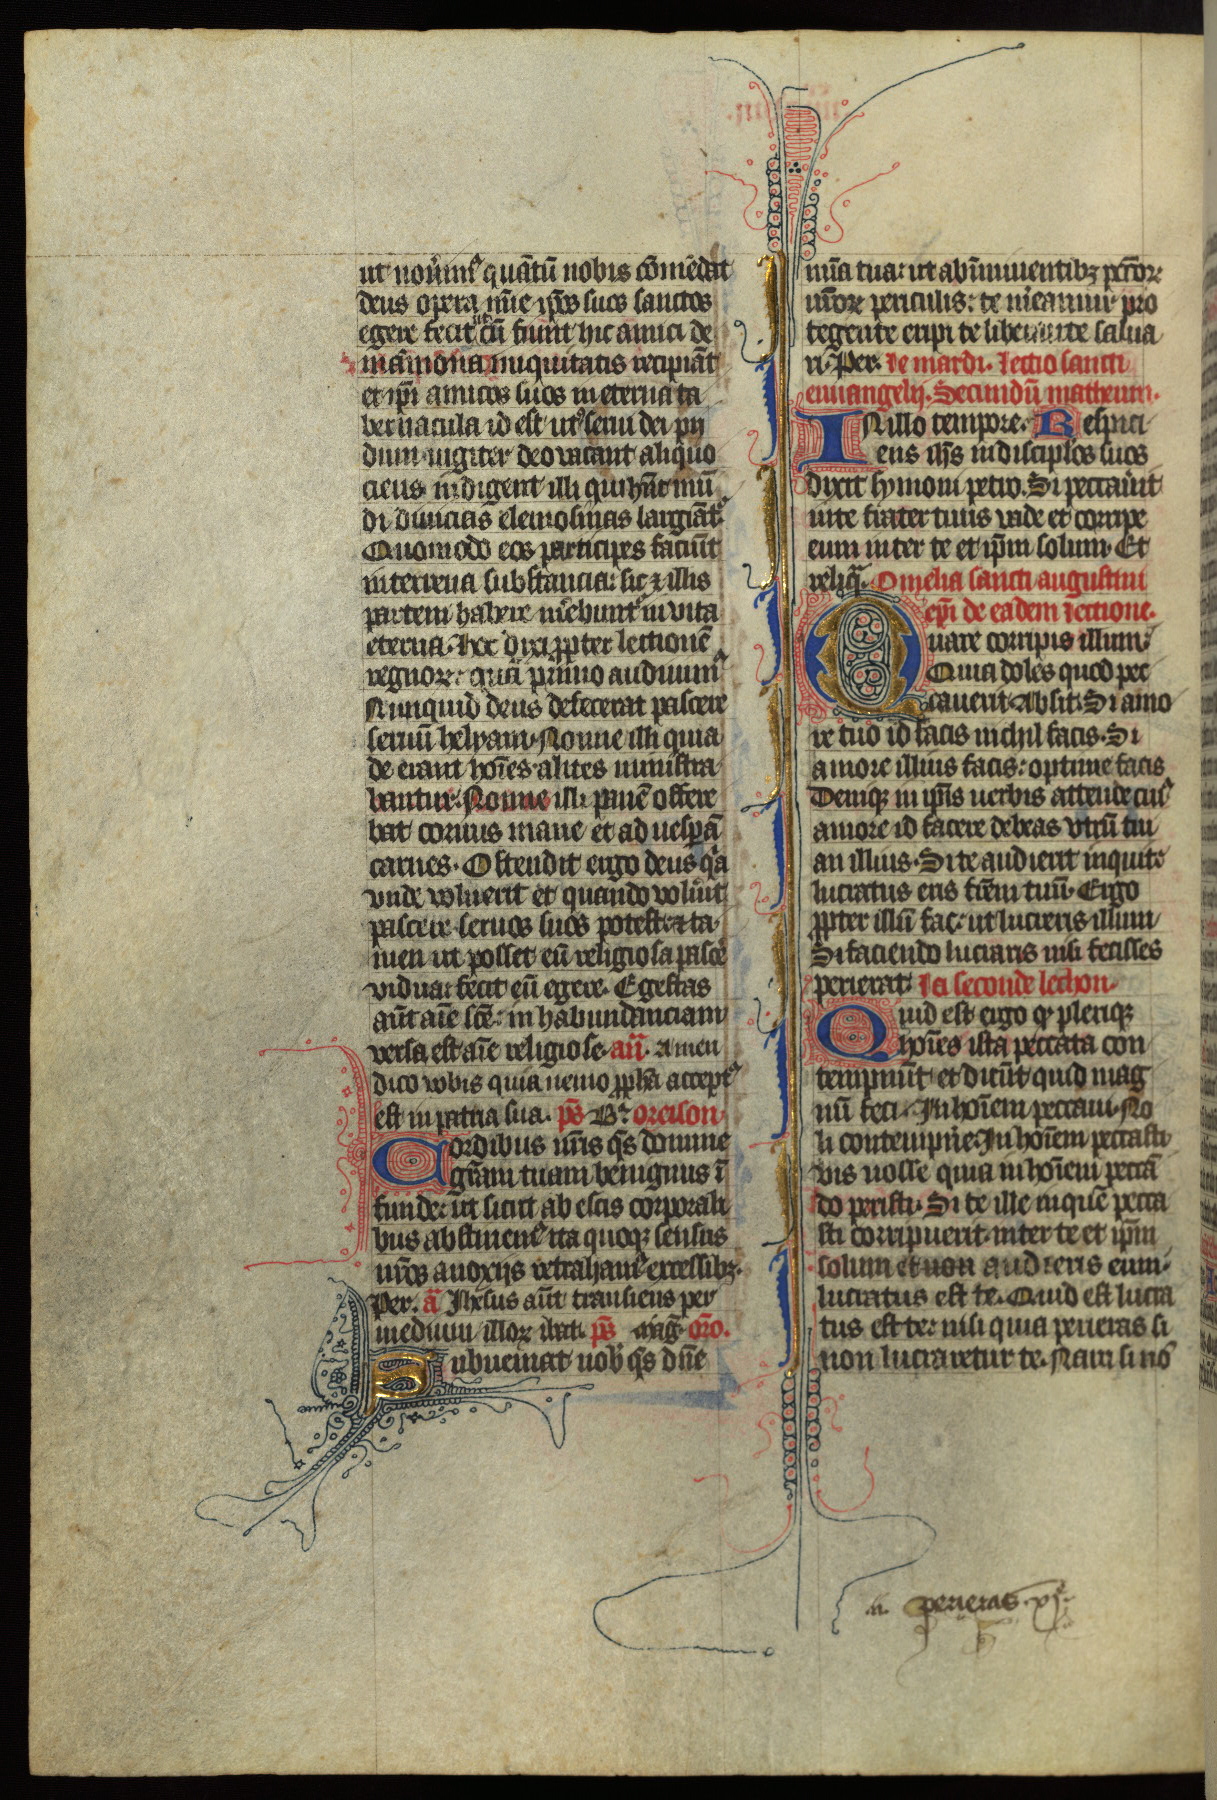 ut nov̾im᷒ quātū nobis cōmēdat
deus opera mīe ip̄os suos sanctos
egere fecit ut cū fiunt hic amici de
māmona iniquitatis recipiāt
et ip̄i amicos suos in eterna ta
bernacula id est ut serui dei pij
dum iugiter deo vacant aliquo
ciens indigent illi qui hn̄t mū
di diuicias elemosinas largiāt᷒
Quomodo eos participes faciūt
in terrena substancia: sic ⁊ illis
partem habere mr̄ebunt᷒ in vita
eterna. Hec dixi ꝓpter lectionē
regnoꝝ: quā primo audiuim᷒
Nunquid deus defecerat pascere
seruū helyam. Nonne illi quia
de erant hoīes alites ministra
bantur. Nonne illi panē offere
bat coruus mane et ad vesꝑā
carnes. Ostendit ergo deus qͥa
vnde voluerit et quando volu̾it
pascere seruos suos potest: ⁊ ta
men ut posset eū religiosa pasc̾e
vidua: fecit eū egere. Egestas
aūt aīe sc̄e in habundanciam
versa est aīe religiose. an̄. Amen
dico vobis quia nemo ꝓph̄a accept᷒
est in patria sua. ps̄ B᷒. oreison
Cordibus nr̄is q̄s domine
gr̄am tuam benignus ī
funde: ut sicut ab escis corporali
bus abstinem᷒ ita quoqꝫ sensus
nr̄os a noxijs retraham᷒ excessibꝫ.
Per. ā Ihesus aūt transiens per
medium illoꝝ ibat. ps̄ maḡ. or̄o.
Subueniat nob̄ q̄s dn̄e
mīa tua: ut ab īminentibꝫ pctōꝝ
nr̄oꝝ periculis: te mr̄eamur pro
tegente eripi te liberante salua
ri. Per. Je mardi. lectio sancti
euuangelij. Secundū matheum.
IN illo tempore. Respici
ens ih̄s in disciplos suos
dixit symoni petro. Si peccau̾it
in te frater tuus vade et corripe
eum inter te et ip̄m solum. Et
reliq̄. Omelia sancti augustini
ep̄i de eadem lectione.
Quare corripis illum.
Quia doles quod pec
cauerit. Absit. Si amo
re tuo id facis nichil facis. Si
amore illius facis: optime facis
Deniqꝫ in ip̄is uerbis attende cui᷒
amore id facere debeas vtrū tui
an illius. Si te audierit inquit:
lucratus eris fr̄em tuū. Ergo
ꝓpter illū fac: ut lucreris illum
Si faciendo lucraris nisi fecisses
perierat. la seconde lechon.
Quid est ergo qͦ pleriqꝫ
hoīes ista peccata con
tempnūt et dicūt quid mag
nū feci. In hoīem peccaui. No
li contempn̾e. In hoīem peccasti
vis nosse quia in hoīem peccā
do peristi. Si te ille in quē pecca
sti corripuerit inter te et ip̄m
solum et non audieris eum.
lucratus est te. Quid est lucra
tus est te: nisi quia perieras si
non lucraretur te. Nam si nō
.n. perieras. xj